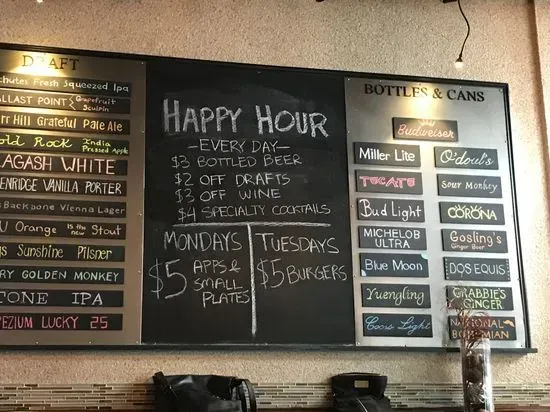 DRAFT
chutes Fresh Squeezed Ipa
ALLAST POINT { Grapefruit Sculpin
rr Hill Grateful Pale Ale
old Rock India Pressed Apple
LAGASH WHITE
KENRIDGE VANILLA PORTER
s Backbone Vienna Lager
U Orange Is the new Stout
gs Sunshine Pilsner
RY GOLDEN MONKEY
TONE IPA
PEZIUM LUCKY 25
HAPPY HOUR
—EVERY DAY—
$3 BOTTLED BEER
$2 OFF DRAFTS
$3 OFF WINE
$4 SPECIALTY COCKTAILS
MONDAYS
$5 APPS & SMALL PLATES
TUESDAYS
$5 BURGERS
BOTTLES & CANS
Budweiser
Miller Lite
O'doul's
TECATE
Sour Monkey
Bud Light
CORONA
MICHELOB ULTRA
Gosling's Ginger Beer
Blue Moon
DOS EQUIS
Yuengling
CRABBIE'S GINGER
Coors Light
NATIONAL BOHEMIAN